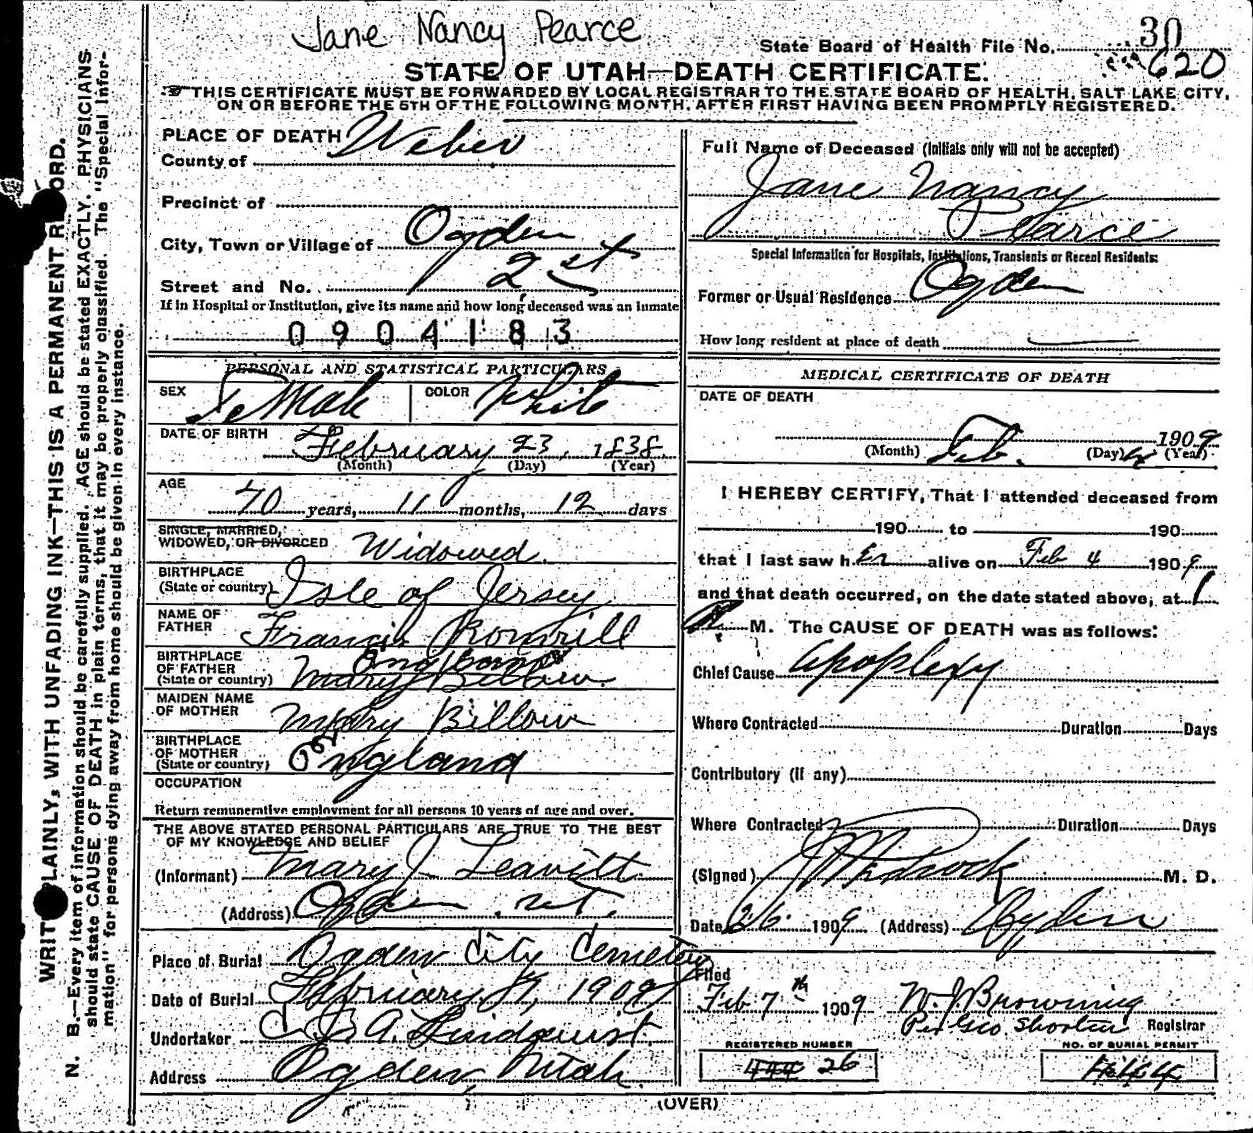 Jane Nancy Pearce
State Board of Health File No. 30
620
STATE OF UTAH—DEATH CERTIFICATE.
THIS CERTIFICATE MUST BE FORWARDED BY LOCAL REGISTRAR TO THE STATE BOARD OF HEALTH, SALT LAKE CITY,
ON OR BEFORE THE 5TH OF THE FOLLOWING MONTH, AFTER FIRST HAVING BEEN PROMPTLY REGISTERED.
PLACE OF DEATH
County of Weber
Precinct of
City, Town or Village of Ogden
Street and No. 2 st
If in Hospital or Institution, give its name and how long deceased was an inmate
0904183
PERSONAL AND STATISTICAL PARTICULARS
SEX FeMale COLOR White
DATE OF BIRTH February 23, 1838.
(Month) (Day) (Year)
AGE
70 years, 11 months, 12 days
SINGLE, MARRIED,
WIDOWED, OR DIVORCED Widowed.
BIRTHPLACE
(State or country) Isle of Jersey
NAME OF
FATHER Francis
BIRTHPLACE
OF FATHER England
(State or country) Mary Billow
MAIDEN NAME
OF MOTHER Mary Billow
BIRTHPLACE
OF MOTHER
(State or country) England
OCCUPATION
Return remunerative employment for all persons 10 years of age and over.
THE ABOVE STATED PERSONAL PARTICULARS ARE TRUE TO THE BEST
OF MY KNOWLEDGE AND BELIEF
(Informant) Mary J. Leavitt
(Address) Ogden Ut.
Place of Burial Ogden City Cemetery
Date of Burial February 1909
Undertaker C. J. A. Lindquist
Address Ogden, Utah.
Full Name of Deceased (Initials only will not be accepted)
Jane Nancy
Pearce
Special Information for Hospitals, Institutions, Transients or Recent Residents:
Former or Usual Residence Ogden
How long resident at place of death
MEDICAL CERTIFICATE OF DEATH
DATE OF DEATH
1909
(Month) Feb. (Day) 4 (Year)
I HEREBY CERTIFY, That I attended deceased from
190 to 190
that I last saw h er alive on Feb 4 1909.
and that death occurred, on the date stated above, at 1
P. M. The CAUSE OF DEATH was as follows:
Chief Cause apoplexy
Where Contracted Duration Days
Contributory (if any)
Where Contracted Duration Days
(Signed) M. D.
Date 2/6 1909 (Address) Ogden
Filed
Feb 7th 1909 W. J. Browning
Per Geo Shorten Registrar
REGISTERED NUMBER
444 26
NO. OF BURIAL PERMIT
(OVER)
WRITE PLAINLY, WITH UNFADING INK—THIS IS A PERMANENT RECORD.
N. B.—Every item of information should be carefully supplied. AGE should be stated EXACTLY. PHYSICIANS
should state CAUSE OF DEATH in plain terms, that it may be properly classified. The "Special Infor-
mation" for persons dying away from home should be given in every instance.